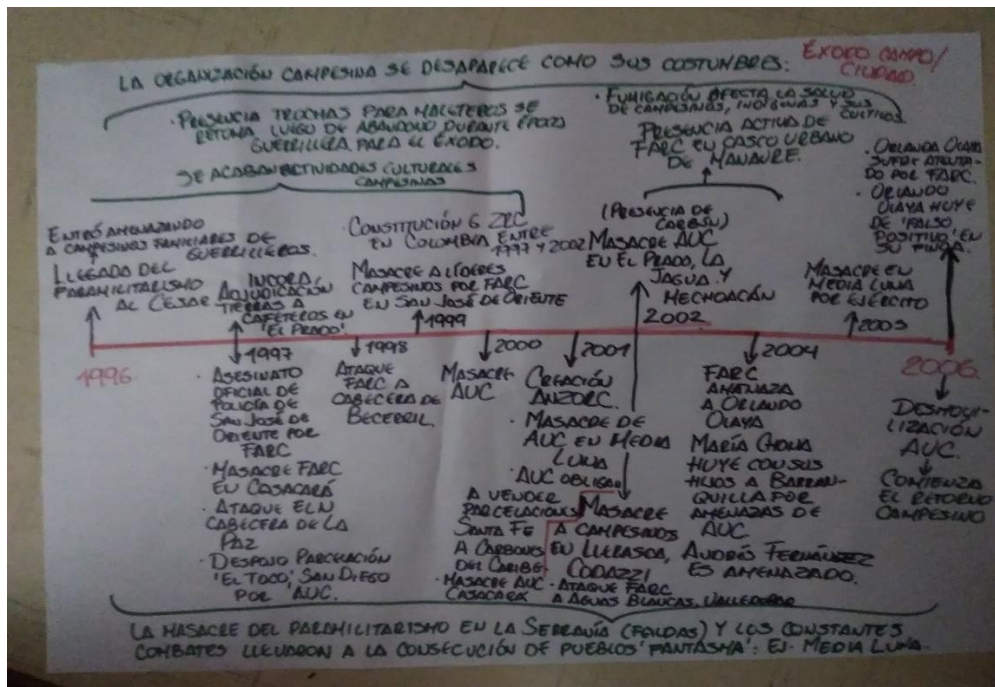 LA ORGANIZACIÓN CAMPESINA SE DESAPARECE COMO SUS COSTUMBRES:
ÉXODO CAMPO/
CIUDAD.
· PRESENCIA TROCHAS PARA MALETEROS SE
RETOMA, LUEGO DE ABANDONO DURANTE ÉPOCA
GUERRILLERA PARA EL ÉXODO.
SE ACABAN ACTIVIDADES CULTURALES
CAMPESINAS
· FUMIGACIÓN AFECTA LA SALUD
DE CAMPESINOS, INDÍGENAS Y SUS
CULTIVOS
PRESENCIA ACTIVA DE
FARC EN CASCO URBANO
DE MANAURE.
· ORLANDO OLAYA
SUFRE ATENTA-
DO POR FARC.
· ORLANDO
OLAYA HUYE
DE 'FALSO
POSITIVO' EN
SU FINCA.
ENTRÓ AMENAZANDO
A CAMPESINOS FAMILIARES DE
GUERRILLEROS.
LLEGADA DEL
PARAMILITARISMO
AL CESAR
INCORA,
ADJUDICACIÓN
TIERRAS A
CAFETEROS EN
'EL PRADO'
CONSTITUCIÓN 6 ZRC
EN COLOMBIA ENTRE
1997 Y 2002
MASACRE A LÍDERES
CAMPESINOS POR FARC
EN SAN JOSÉ DE ORIENTE
(PRESENCIA DE
CARBÓN)
MASACRE AUC
EN EL PRADO, LA
JAGUA Y
MECHOACÁN
MASACRE EN
MEDIA LUNA
POR EJÉRCITO
1999
2002
2005
1996
1997
1998
2000
2001
2004
2006
· ASESINATO
OFICIAL DE
POLICÍA DE
SAN JOSÉ DE
ORIENTE POR
FARC
· MASACRE FARC
EN CASACARÁ
· ATAQUE ELN
CABECERA DE LA
PAZ
· DESPOJO PARCELACIÓN
'EL TOCO', SAN DIEGO
POR AUC.
ATAQUE
FARC A
CABECERA DE
BECERRIL.
MASACRE
AUC
CREACIÓN
ANZORC.
· MASACRE DE
AUC EN MEDIA
LUNA
· AUC OBLIGA
A VENDER
PARCELACIONES
SANTA FE
A CARBONES
DEL CARIBE.
· MASACRE AUC
CASACARÁ
MASACRE
A CAMPESINOS
EN LLERASCA,
CODAZZI
· ATAQUE FARC
A AGUAS BLANCAS, VALLEDUPAR
FARC
AMENAZA
A ORLANDO
OLAYA
MARÍA CHONA
HUYE CON SUS
HIJOS A BARRAN-
QUILLA POR
AMENAZAS DE
AUC.
ANDRÉS FERNÁNDEZ
ES AMENAZADO.
DESMOVI-
LIZACIÓN
AUC.
COMIENZA
EL RETORNO
CAMPESINO
LA MASACRE DEL PARAMILITARISMO EN LA SERRANÍA (FALDAS) Y LOS CONSTANTES
COMBATES LLEVARON A LA CONSECUCIÓN DE PUEBLOS 'FANTASMA': EJ. MEDIA LUNA.